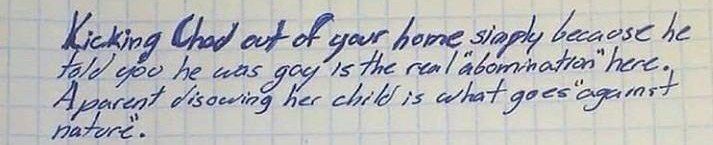 Kicking Chad out of your home simply because he
told you he was gay is the real "abomination" here.
A parent disowing her child is what goes "against
nature".